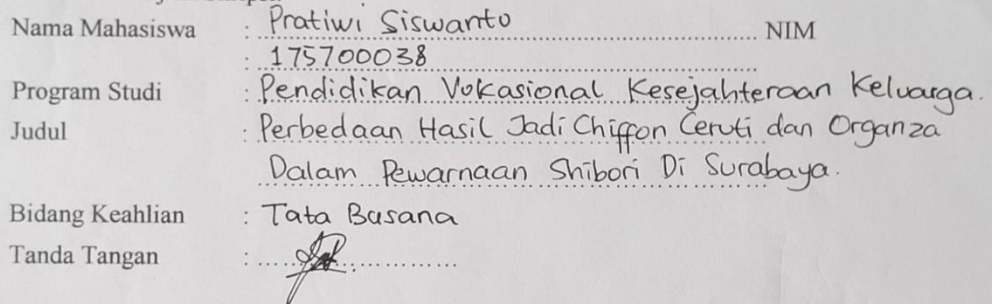 Nama Mahasiswa : Pratiwi Siswanto NIM
: 175700038
Program Studi : Pendidikan Vokasional Kesejahteraan Keluarga.
Judul : Perbedaan Hasil Jadi Chiffon Ceruti dan Organza
Dalam Pewarnaan Shibori Di Surabaya.
Bidang Keahlian : Tata Busana
Tanda Tangan :